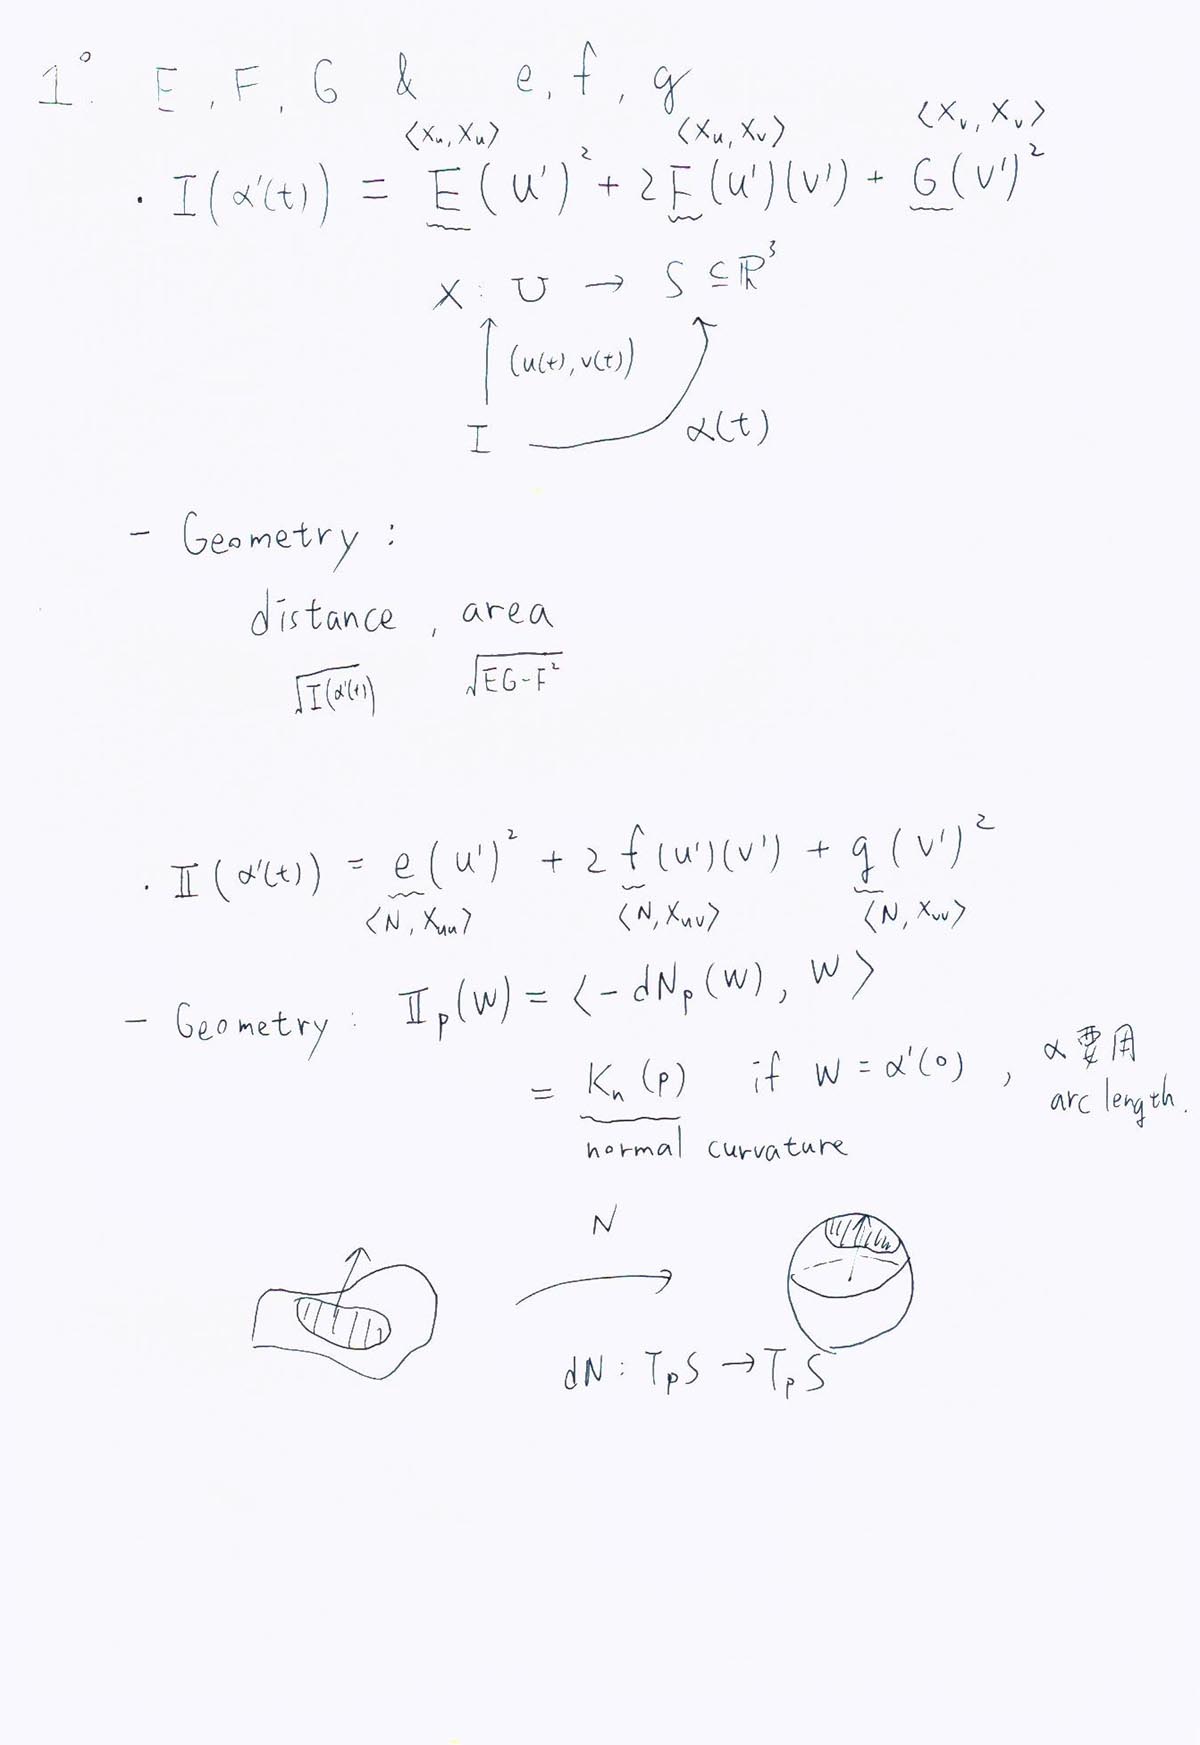 1°. E, F, G & e, f, g
⟨Xu, Xu⟩ ⟨Xu, Xv⟩ ⟨Xv, Xv⟩
· I(α'(t)) = E(u')² + 2F(u')(v') + G(v')²
X : U → S ⊆ ℝ³
(u(t), v(t))
I α(t)
- Geometry :
distance , area
√I(α'(t)) √EG-F²
· II(α'(t)) = e(u')² + 2f(u')(v') + g(v')²
⟨N, Xuu⟩ ⟨N, Xuv⟩ ⟨N, Xvv⟩
- Geometry : IIp(w) = ⟨-dNp(w), w⟩
= Kn(p) if w = α'(0) , α要用
arc length.
normal curvature
N
dN : TpS → TpS